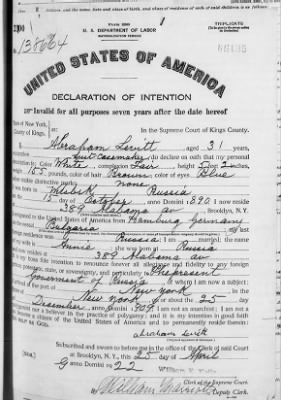 U. S. DEPARTMENT OF LABOR
NATURALIZATION SERVICE
TRIPLICATE
138664
UNITED STATES OF AMERICA
DECLARATION OF INTENTION
Invalid for all purposes seven years after the date hereof
State of New York,
County of Kings,
In the Supreme Court of Kings County.
I, Abraham Levitt aged 31 years,
occupation do declare on oath that my personal
description is: Color White, complexion Fair, height 5 feet 2 inches,
weight 155 pounds, color of hair Brown, color of eyes Blue
other visible distinctive marks none
I was born in Russia
on the 15 day of October, anno Domini 1890. I now reside
at 389 Alabama av Brooklyn, N.Y.
I emigrated to the United States of America from Hamburg Germany
on the vessel Bulgaria my last
foreign residence was Russia I am married; the name
of my wife is Annie she was born at Russia
and now resides at 389 Alabama av
It is my bona fide intention to renounce forever all allegiance and fidelity to any foreign
prince, potentate, state, or sovereignty, and particularly to The present
Government of Russia of whom I am now a subject;
I arrived at the port of New York, in the
State of New York on or about the 25 day
of December, anno Domini 1909. I am not an anarchist; I am not a
polygamist nor a believer in the practice of polygamy; and it is my intention in good faith
to become a citizen of the United States of America and to permanently reside therein:
SO HELP ME GOD.
abraham Levitt
Subscribed and sworn to before me in the office of the Clerk of said Court
at Brooklyn, N.Y., this 25 day of April
anno Domini 1922
Clerk of the Supreme Court.
Deputy Clerk.